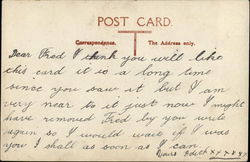 POST CARD.
Correspondence. The Address only.
Dear Fred I think you will like
this card it is a long time
since you saw it but I am
very near to it just now I might
have removed Fred by you write
again so I would wait if I was
you I shall as soon as I can
Yours Edith x x x x x